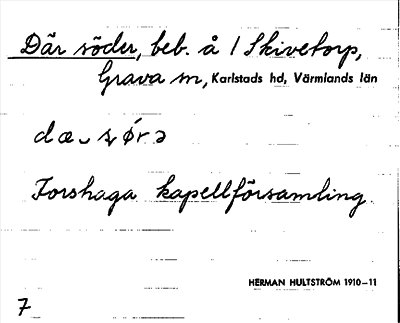 Där söder, beb. å 1 Skivetorp,
Grava sn, Karlstads hd, Värmlands län
dæ ˬ sǿ̨rə
Forshaga kapellförsamling.
HERMAN HULTSTRÖM 1910–11
7